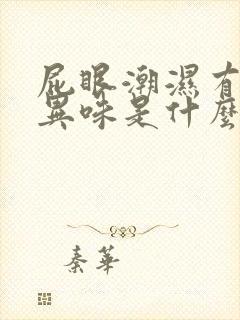 屁眼潮濕有
異味是什麼
秦華